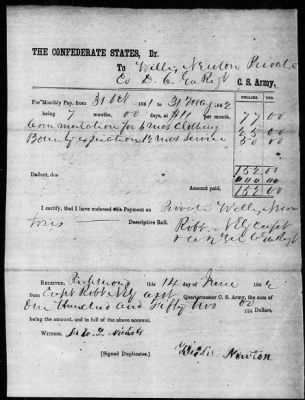 THE CONFEDERATE STATES, Dr.
To Willis Newton Private
Co D. 6 Ga Regt C. S. Army,
DOLLARS. CTS.
For Monthly Pay, from 31 Oct 1861 to 31 May 1862
being 7 months, 00 days, at $11 per month, 77 00
Commutation for 6 mos Clothing 25 00
Bounty expiration 12 mos service 50 00
152 00
Deduct, due
Amount paid, 152 00
I certify, that I have endorsed this Payment on Private Willis New
tons Descriptive Roll. Robt N Ely Capt
RECEIVED, Richmond this 14 day of June 1862
from Capt Robt N Ely Quartermaster C. S. Army, the sum of
One Hundred and Fifty two 00/100 Dollars,
being the amount, and in full of the above account.
WITNESS,
Willis Newton
[Signed Duplicates.]